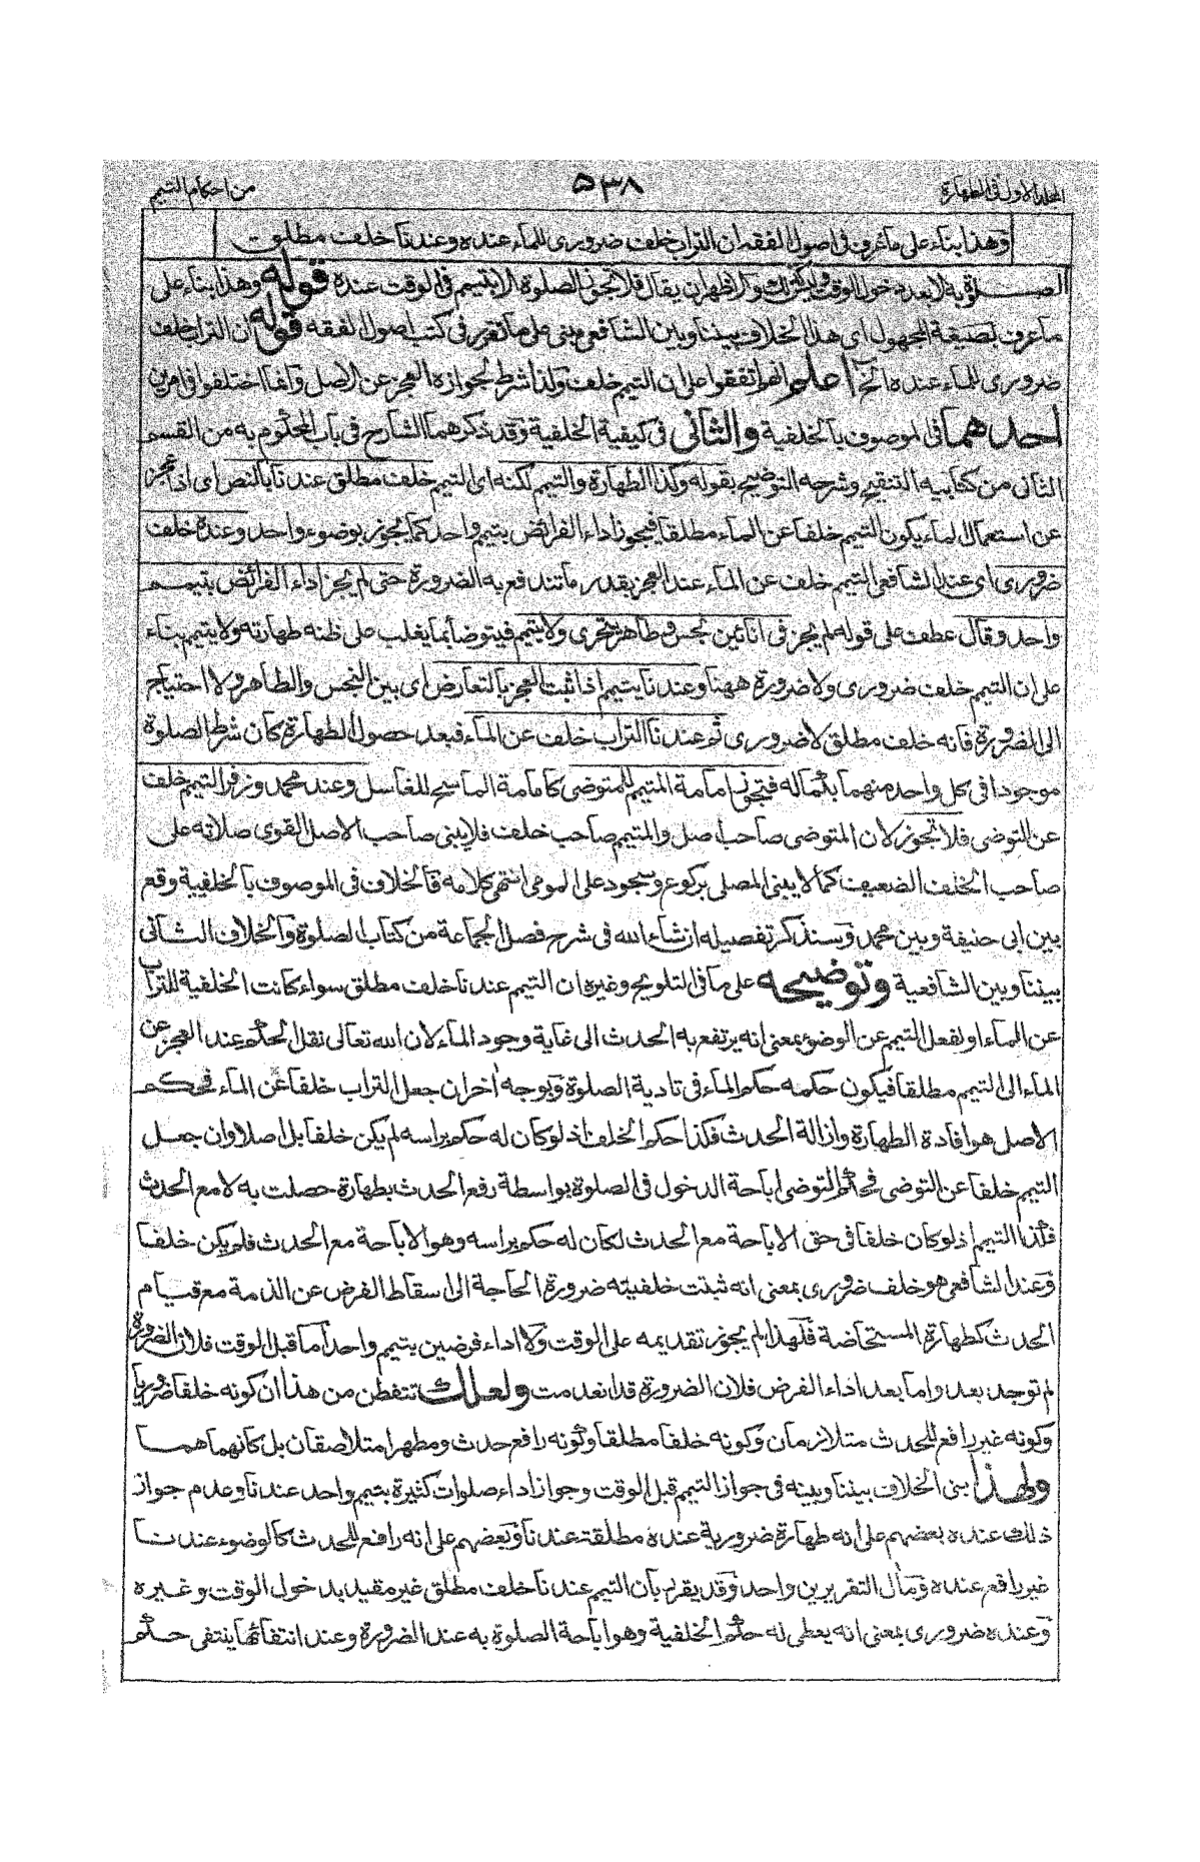 المجلد الاول فى الطهارة ۵۳۸ من احكام التيمم
وهذا بناء على ما عرف فى اصول الفقه ان التراب خلف ضرورى للماء عنده وعندنا خلف مطلق
الصلوة به لا بعد دخول الوقت والاظهر ان يقال فلا تجوز الصلوة الا بتيمم فى الوقت عنده قوله وهذا بناء على
ما عرف بصيغة المجهول اى هذا الخلاف بيننا وبين الشافعى مبنى على ما تقرر فى كتب اصول الفقه قوله ان التراب خلف
ضرورى للماء عنده الخ اعلم انهم اتفقوا على ان التيمم خلف ولذا شرط لجوازه العجز عن الاصل وانما اختلفوا فى امرين
احدهما فى الموصوف بالخلفية والثانى فى كيفية الخلفية وقد ذكرهما الشارح فى باب المحكوم به من القسم
الثانى من كتابيه التنقيح وشرحه التوضيح بقوله وكذا الطهارة والتيمم لكنه اى التيمم خلف مطلق عندنا بالنص اى اذا عجز
عن استعمال الماء يكون التيمم خلفا عن الماء مطلقا فيجوز اداء الفرائض بتيمم واحد كما يجوز بوضوء واحد وعنده خلف
ضرورى اى عند الشافعى التيمم خلف عن الماء عند العجز بقدر ما تندفع به الضرورة حتى لم يجز اداء الفرائض بتيمم
واحد وقال عطف على قوله لم يجز فى انائين نجس وطاهر يتحرى ولا يتيمم فيتوضأ بما يغلب على ظنه طهارته ولا يتيمم بناء
على ان التيمم خلف ضرورى ولا ضرورة ههنا وعندنا يتيمم اذا ثبت العجز بالتعارض اى بين النجس والطاهر ولا احتياج
الى الضرورة فانه خلف مطلق لا ضرورى ثم عندنا التراب خلف عن الماء فبعد حصول الطهارة كان شرط الصلوة
موجودا فى كل واحد منهما بكماله فتجوز امامة المتيمم للمتوضى كامامة الماسح للغاسل وعند محمد وزفر التيمم خلف
عن التوضى فلا تجوز لان المتوضى صاحب اصل والمتيمم صاحب خلف فلا يبنى صاحب الاصل القوى صلاته على
صاحب الخلف الضعيف كما لا يبنى المصلى بركوع وسجود على المومى انتهى كلامه فالخلاف فى الموصوف بالخلفية وقع
بين ابى حنيفة وبين محمد وسنذكر تفصيله انشاء الله فى شرح فصل الجماعة من كتاب الصلوة والخلاف الثانى
بيننا وبين الشافعية وتوضيحه على ما فى التلويح وغيره ان التيمم عندنا خلف مطلق سواء كانت الخلفية للتراب
عن الماء او لفعل التيمم عن الوضوء بمعنى انه يرتفع به الحدث الى غاية وجود الماء لان الله تعالى نقل الحكم عند العجز عن
الماء الى التيمم مطلقا فيكون حكمه حكم الماء فى تادية الصلوة وبوجه اخر ان جعل التراب خلفا عن الماء فحكم
الاصل هو افادة الطهارة وازالة الحدث فكذا حكم الخلف اذ لو كان له حكم براسه لم يكن خلفا بل اصلا وان جعل
التيمم خلفا عن التوضى فحكم التوضى اباحة الدخول فى الصلوة بواسطة رفع الحدث بطهارة حصلت به لا مع الحدث
فكذا التيمم اذ لو كان خلفا فى حق الاباحة مع الحدث لكان له حكم براسه وهو الاباحة مع الحدث فلم يكن خلفا
وعند الشافعى هو خلف ضرورى بمعنى انه ثبتت خلفيته ضرورة الحاجة الى اسقاط الفرض عن الذمة مع قيام
الحدث كطهارة المستحاضة فلهذا لم يجوز تقديمه على الوقت ولا اداء فرضين بتيمم واحد اما قبل الوقت فلان الضرورة
لم توجد بعد واما بعد اداء الفرض فلان الضرورة قد انعدمت ولعلك تتفطن من هذا ان كونه خلفا ضروريا
وكونه غير رافع للحدث متلازمان وكونه خلفا مطلقا وكونه رافع حدث ومطهرا متلاصقان بل كانهما هما
ولهذا بنى الخلاف بيننا وبينه فى جواز التيمم قبل الوقت وجواز اداء صلوات كثيرة بتيمم واحد عندنا وعدم جواز
ذلك عنده بعضهم على انه طهارة ضرورية عنده مطلقة عندنا وبعضهم على انه رافع للحدث كالوضوء عندنا
غير رافع عنده ومال التقريرين واحد وقد يقرر بان التيمم عندنا خلف مطلق غير مقيد بدخول الوقت وغيره
وعنده ضرورى بمعنى انه يعطى له حكم الخلفية وهو اباحة الصلوة به عند الضرورة وعند انتفائها ينتفى حكم